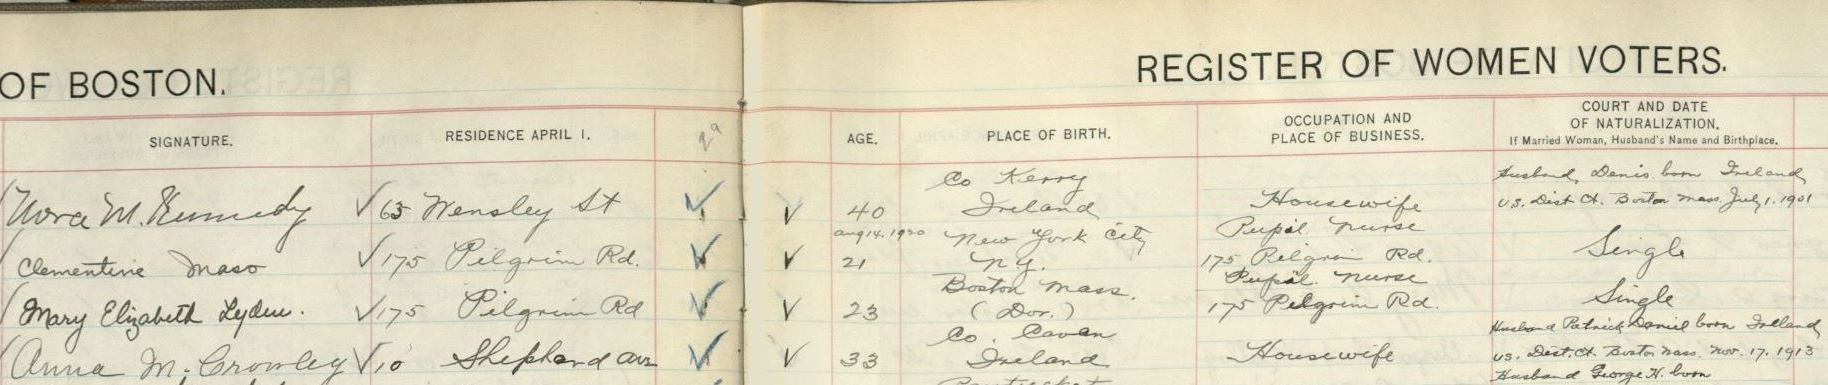 OF BOSTON.
REGISTER OF WOMEN VOTERS.
SIGNATURE.
RESIDENCE APRIL 1.
AGE.
PLACE OF BIRTH.
OCCUPATION AND
PLACE OF BUSINESS.
COURT AND DATE
OF NATURALIZATION.
If Married Woman, Husband's Name and Birthplace.
Nora M. Kennedy √ 63 Wensley St √ √ 40 Co Kerry
Ireland Housewife Husband, Denis born Ireland
U.S. Dist Ct. Boston Mass. July 1. 1901
Clementine Maso √ 175 Pilgrim Rd. √ √ Aug 14. 1920
21 New York City
N.Y. Pupil Nurse
175 Pilgrim Rd. Single
Mary Elizabeth Lyden. √ 175 Pilgrim Rd √ √ 23 Boston Mass.
(Dor.) Pupil Nurse
175 Pilgrim Rd. Single
Anna M. Crowley √ 10 Shephard Ave √ √ 33 Co. Cavan
Ireland Housewife Husband Patrick Daniel born Ireland
U.S. Dist. Ct. Boston Mass. Nov. 17. 1913
Husband George H. born